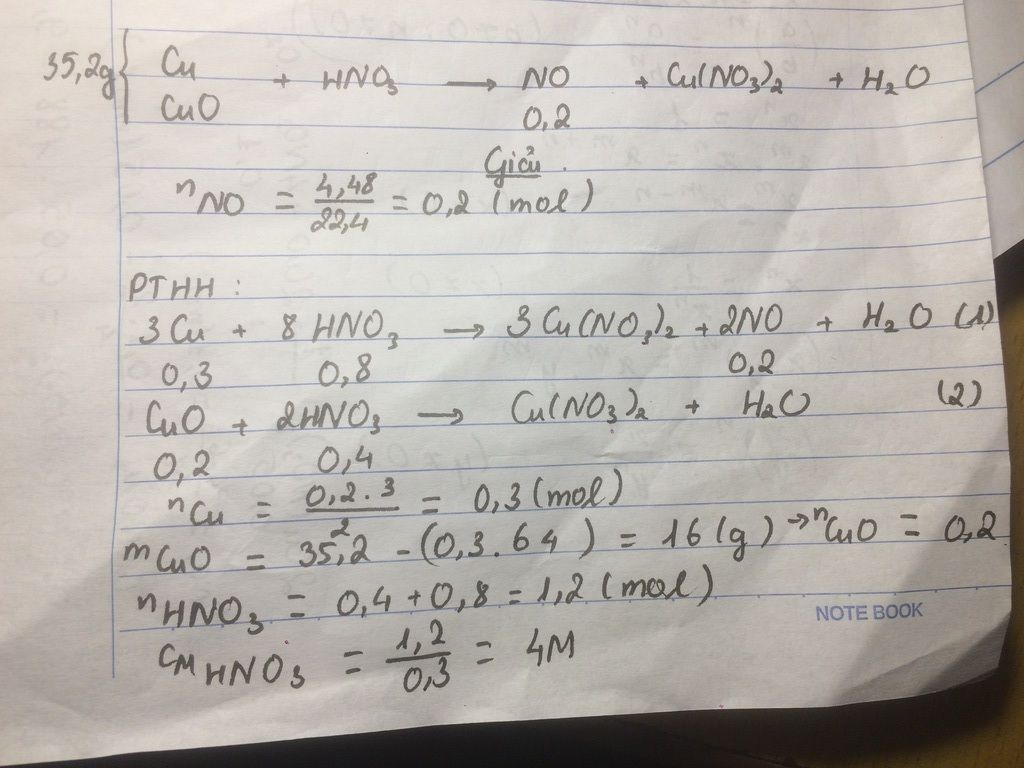 35,2g { Cu + HNO₃ → NO + Cu(NO₃)₂ + H₂O
CuO 0,2
Giải.
nNO = 4,48/22,4 = 0,2 (mol)
PTHH :
3Cu + 8HNO₃ → 3Cu(NO₃)₂ + 2NO + H₂O (1)
0,3 0,8 0,2
CuO + 2HNO₃ → Cu(NO₃)₂ + H₂O (2)
0,2 0,4
nCu = 0,2.3/2 = 0,3 (mol)
mCuO = 35,2 - (0,3.64) = 16 (g) → nCuO = 0,2
nHNO₃ = 0,4 + 0,8 = 1,2 (mol)
NOTE BOOK
CM HNO₃ = 1,2/0,3 = 4M